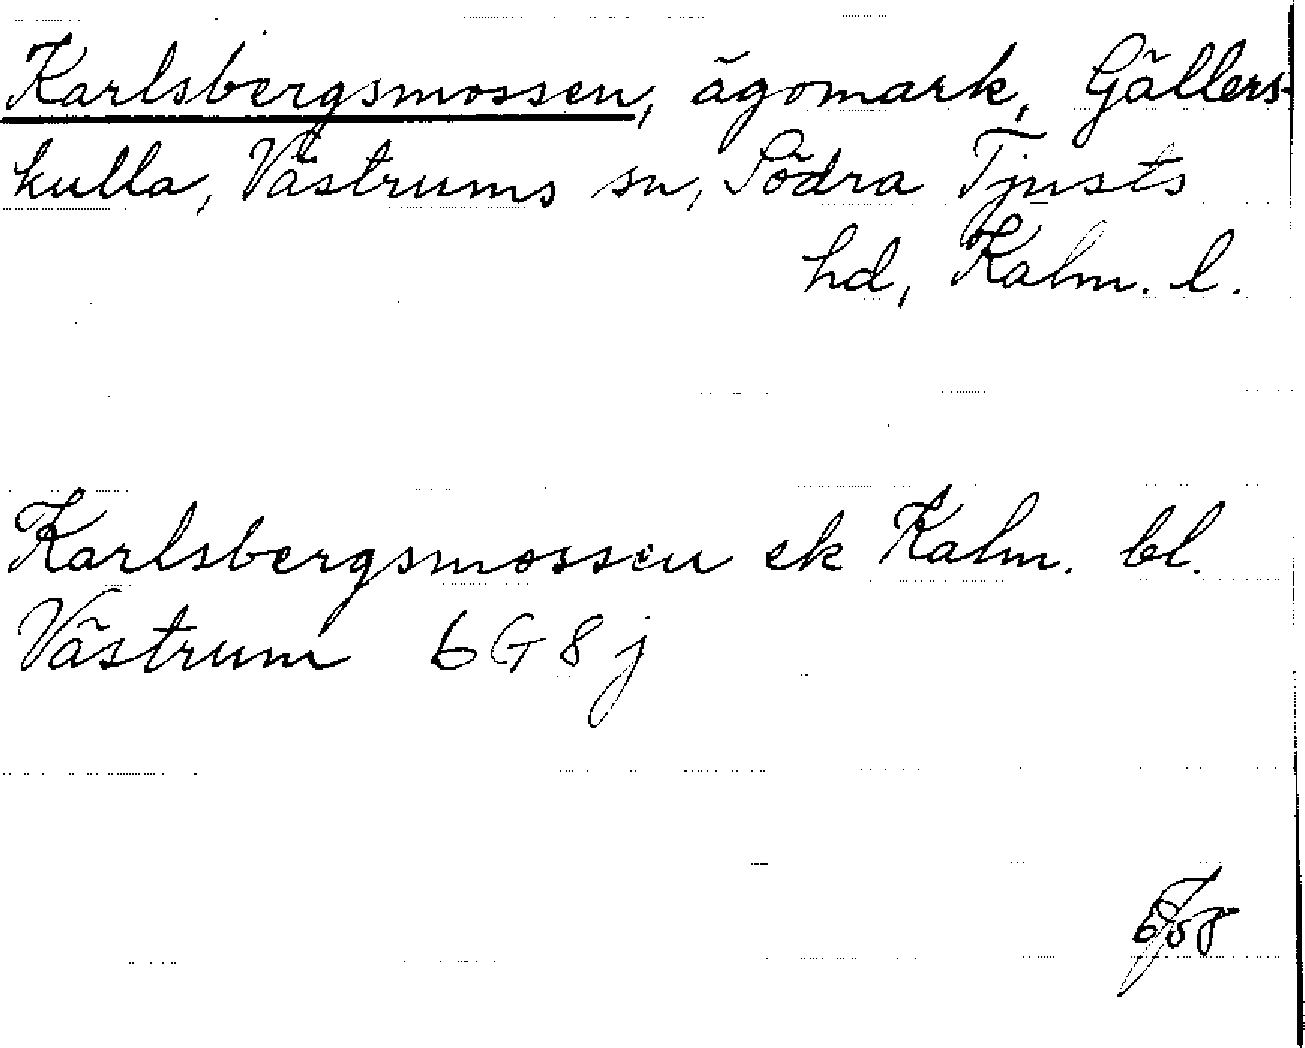 Karlsbergsmossen, ägomark, Gällers-
kulla, Västrums sn, Södra Tjusts
hd, Kalm. l.
Karlsbergsmossen ek Kalm. bl.
Västrum 6G8j